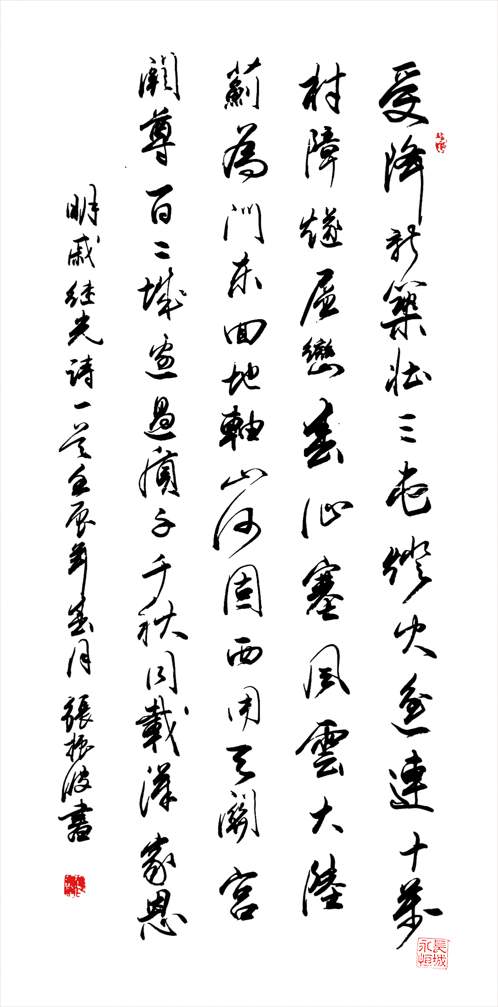 受降新築壯三屯燈火遙連十萬
村障燧層巒春塞風雲大陸
薊為門東回地軸山河固西天關宮
闕尊百二城邊子千秋同載漢家恩
明戚继光詩一首壬辰年春月張振波書
長城永恒